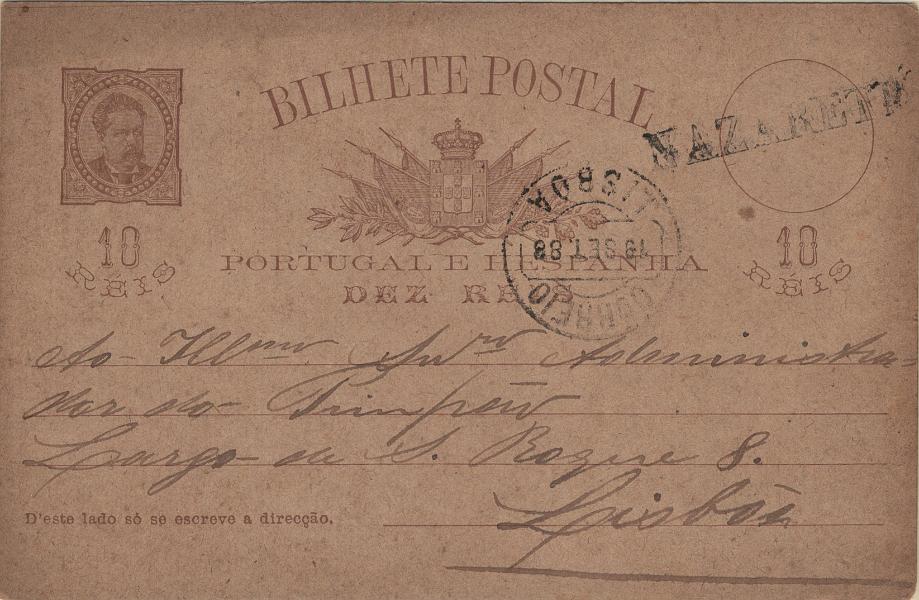 BILHETE POSTAL
NAZARETH
CORREIO LISBOA
19 SET 88
10 RÉIS
10 RÉIS
PORTUGAL E HESPANHA
DEZ REIS
Ao Illmo Snr Administra-
dor do
Largo de S. Roque 8.
Lisbôa
D'este lado só se escreve a direcção.